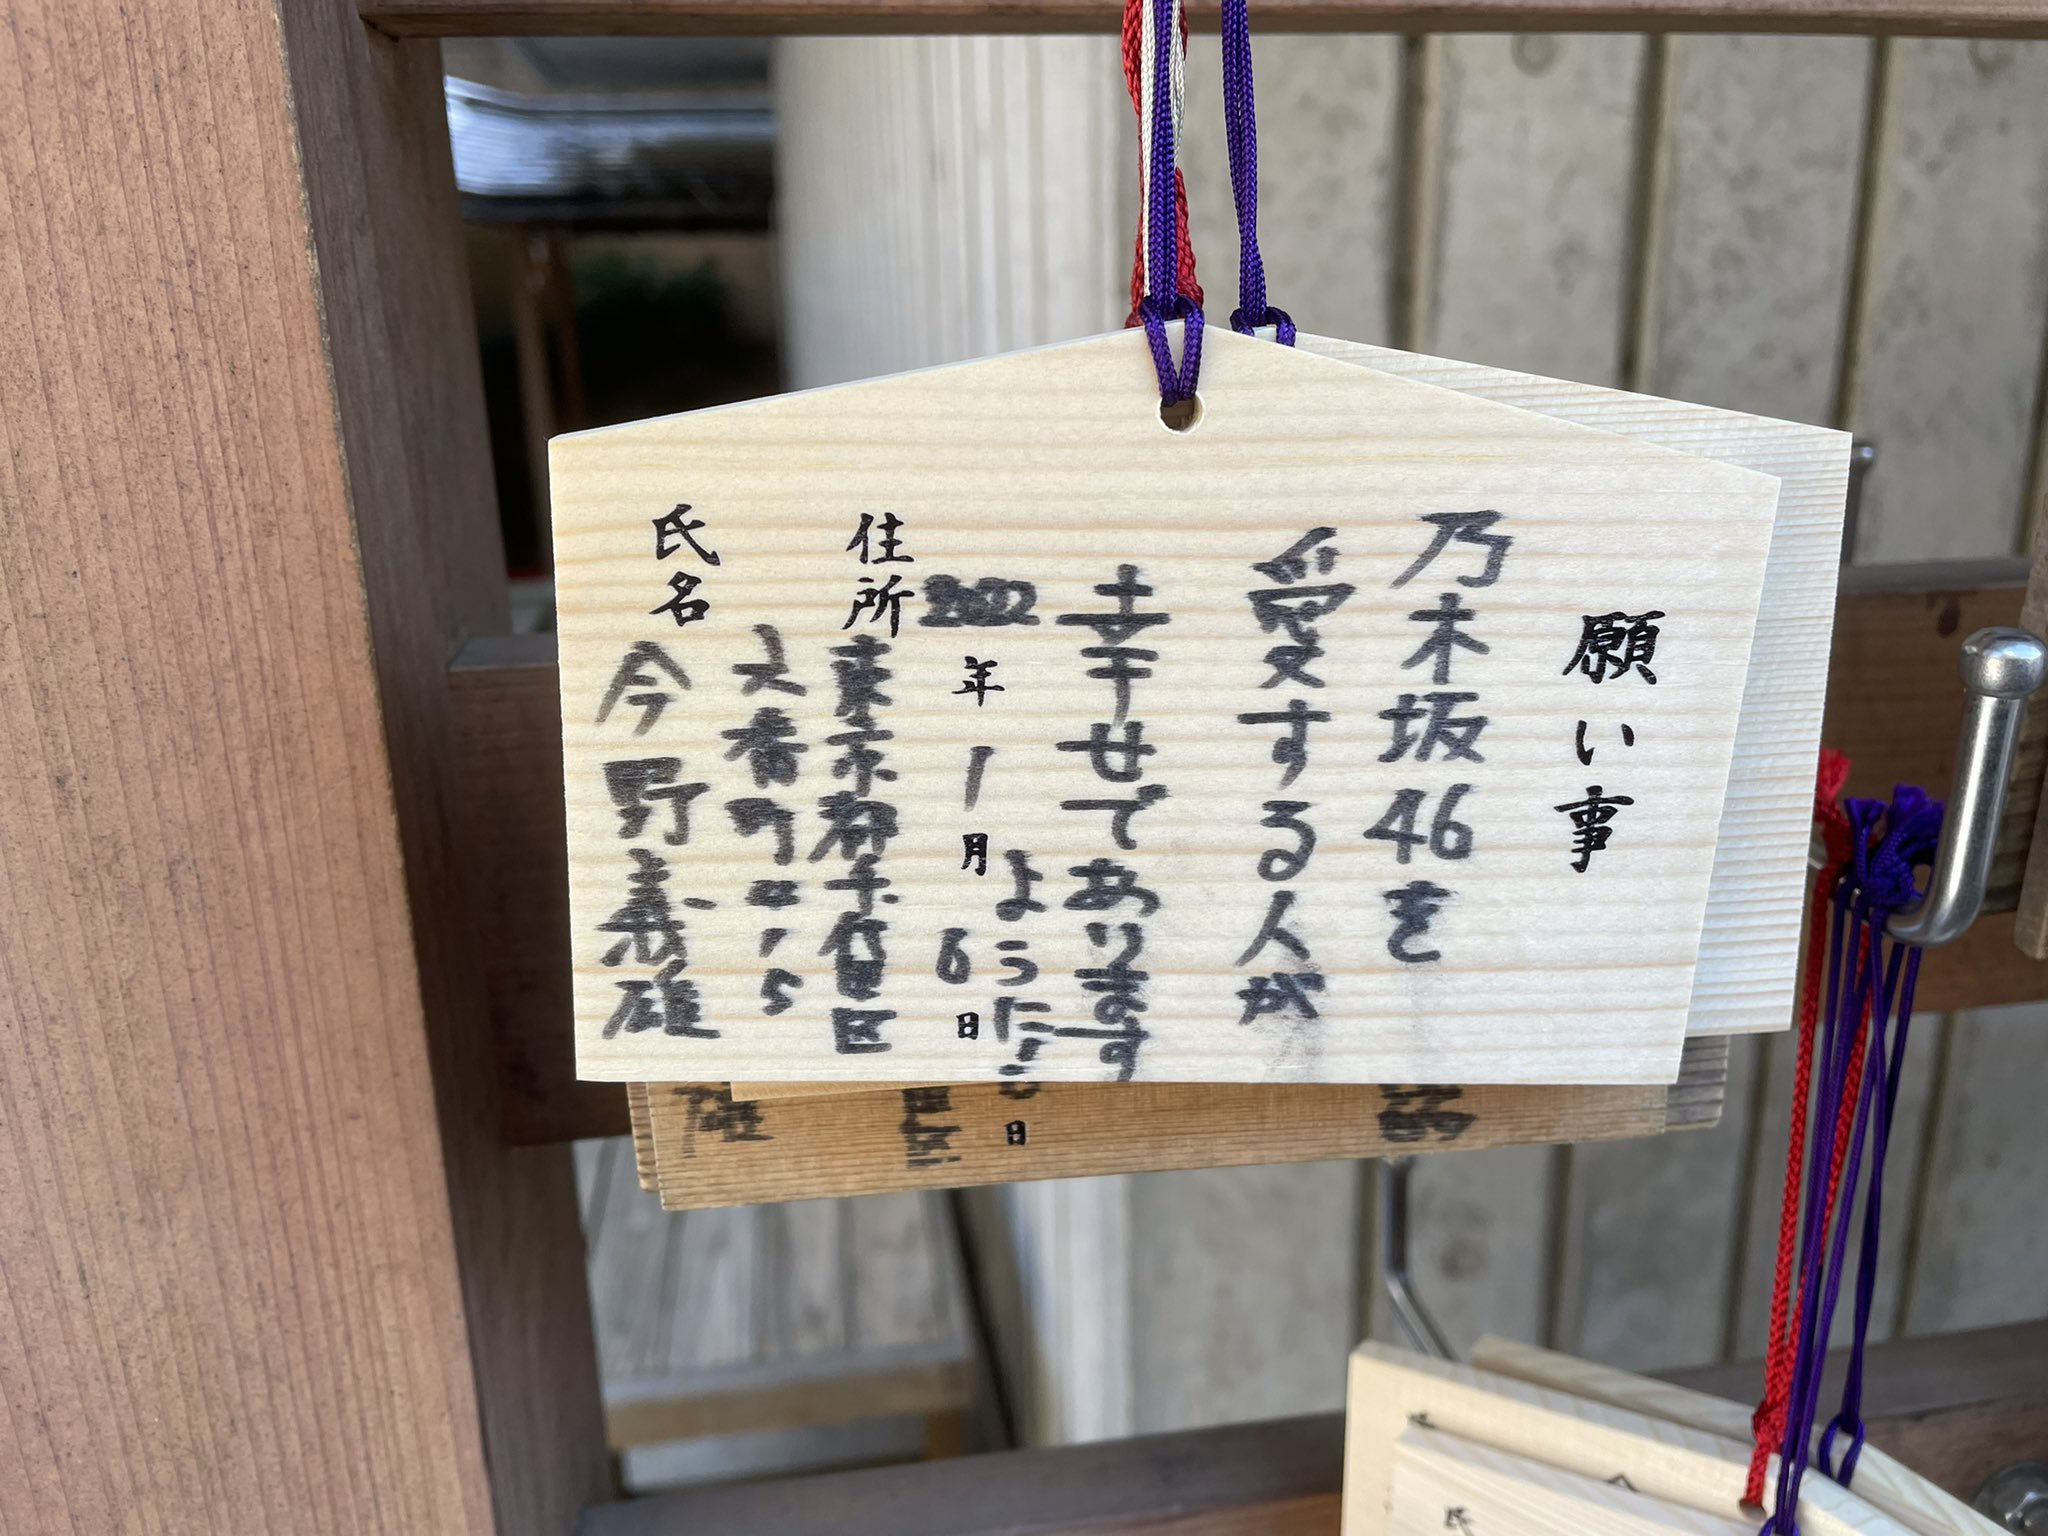 願い事
乃木坂46を
愛する人が
幸せであります
ように
2022年1月6日
住所 東京都千代田区
一番町
15
氏名 今野義雄
日